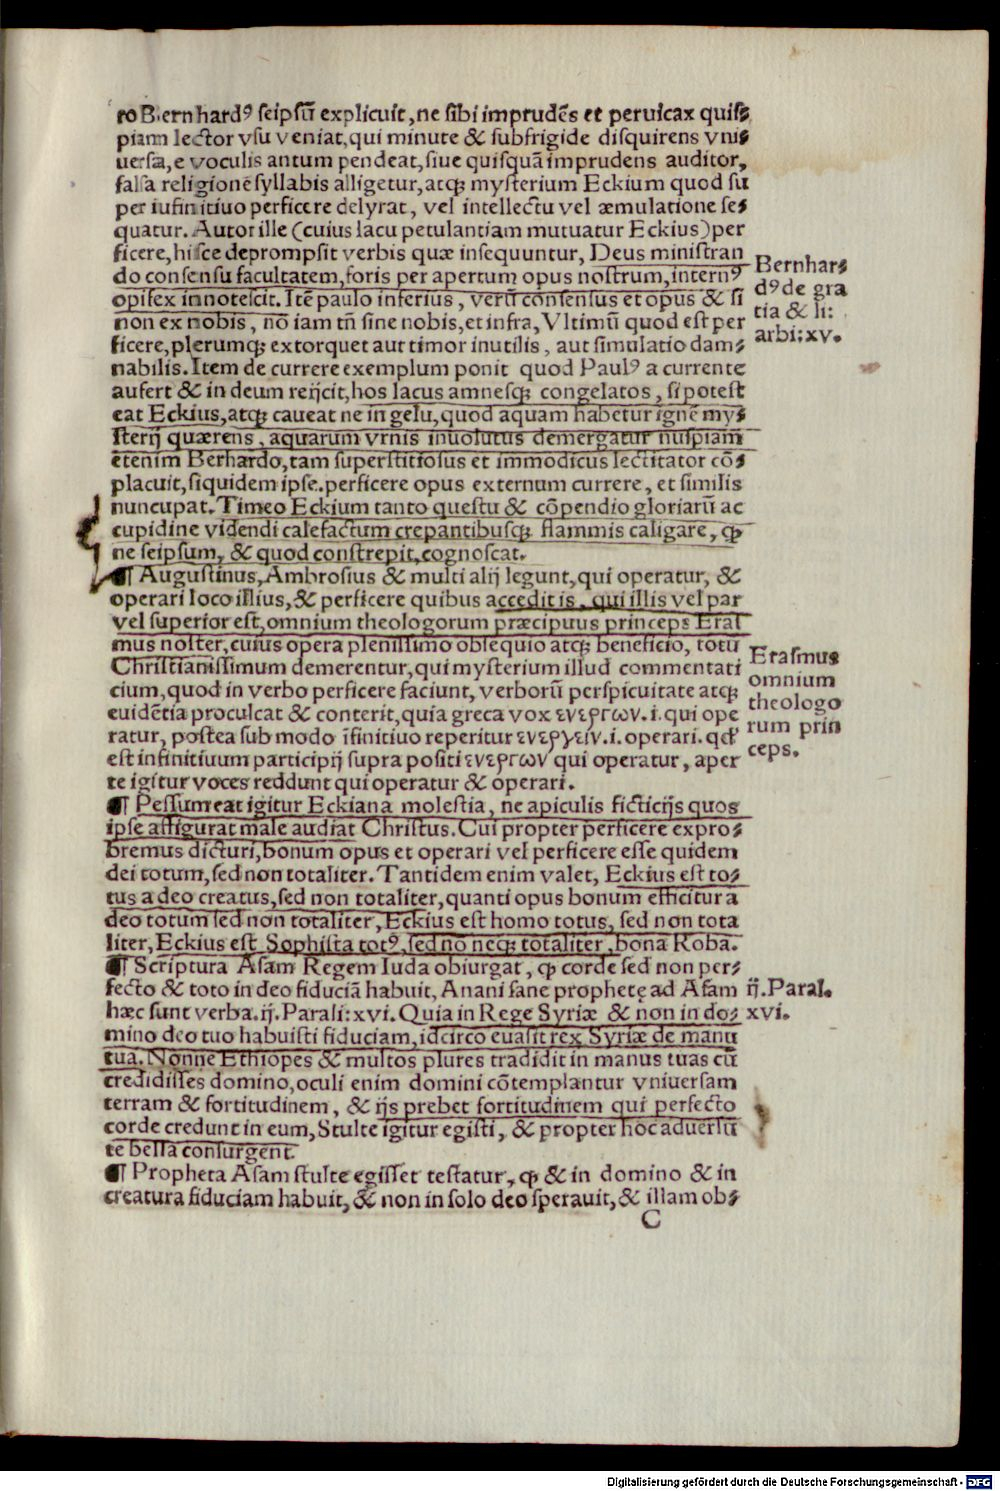 ro Bernhardꝰ seipsū explicuit, ne sibi imprudēs et peruicax quis⸗
piam lector vsu veniat, qui minute & subfrigide disquirens vni⸗
uersa, e voculis antum pendeat, siue quisquā imprudens auditor,
falsa religionē syllabis alligetur, atqꝫ mysterium Eckium quod su
per iufinitiuo perficere delyrat, vel intellectu vel æmulatione se⸗
quatur. Autor ille (cuius lacu petulantiam mutuatur Eckius) per
ficere, hisce deprompsit verbis quæ insequuntur, Deus ministran
do consensu facultatem, foris per apertum opus nostrum, internꝰ
opifex innotescit. Itē paulo inferius, verū consensus et opus & si
non ex nobis, nō iam tn̄ sine nobis, et infra, Vltimū quod est per
ficere, plerumqꝫ extorquet aut timor inutilis, aut simulatio dam⸗
nabilis. Item de currere exemplum ponit quod Paulꝰ a currente
aufert & in deum reijcit, hos lacus amnesqꝫ congelatos, si potest
eat Eckius, atqꝫ caueat ne in gelu, quod aquam habetur ignē my⸗
sterij quærens, aquarum vrnis inuolutus demergatur nuspiam
etenim Berhardo, tam superstitiosus et immodicus lectitator cō⸗
placuit, siquidem ipse. perficere opus externum currere, et similis
nuncupat. Timeo Eckium tanto questu & cōpendio gloriarū ac
cupidine videndi calefactum crepantibusqꝫ flammis caligare, ꝙ
ne seipsum, & quod constrepit, cognoscat.
¶ Augustinus, Ambrosius & multi alij legunt, qui operatur, &
operari loco illius, & perficere quibus accedit is, qui illis vel par
vel superior est, omnium theologorum præcipuus princeps Eras
mus noster, cuius opera plenissimo obsequio atqꝫ beneficio, totū
Christianissimum demerentur, qui mysterium illud commentati
cium, quod in verbo perficere faciunt, verborū perspicuitate atqꝫ
euidētia proculcat & conterit, quia greca vox ενεργων .i. qui ope
ratur, postea sub modo īfinitiuo reperitur ενεργειν .i. operari. qd̄
est infinitiuum participij supra positi ενεργων qui operatur, aper
te igitur voces reddunt qui operatur & operari.
¶ Pessum eat igitur Eckiana molestia, ne apiculis ficticijs quos
ipse affigurat male audiat Christus. Cui propter perficere expro⸗
bremus dicturi, bonum opus et operari vel perficere esse quidem
dei totum, sed non totaliter. Tantidem enim valet, Eckius est to⸗
tus a deo creatus, sed non totaliter, quanti opus bonum efficitur a
deo totum sed non totaliter, Eckius est homo totus, sed non tota
liter, Eckius est Sophista totꝰ, sed nō neqꝫ totaliter, bona Roba.
¶ Scriptura Asam Regem Iuda obiurgat, ꝙ corde sed non per⸗
fecto & toto in deo fiduciā habuit, Anani sane prophetę ad Asam
hæc sunt verba. ij. Parali: xvi. Quia in Rege Syriæ & non in do⸗
mino deo tuo habuisti fiduciam, idcirco euasit rex Syriæ de manu
tua. Nonne Ethiopes & multos plures tradidit in manus tuas cū
credidisses domino, oculi enim domini cōtemplantur vniuersam
terram & fortitudinem, & ijs prebet fortitudinem qui perfecto
corde credunt in eum, Stulte igitur egisti, & propter hoc aduersū
te bella consurgent.
¶ Propheta Asam stulte egisset testatur, ꝙ & in domino & in
creatura fiduciam habuit, & non in solo deo sperauit, & illam ob⸗
C
Bernhar⸗
dꝰ de gra
tia & li:
arbi: xv.
Erasmus
omnium
theologo
rum prin
ceps.
ij. Paral.
xvi.
Digitalisierung gefördert durch die Deutsche Forschungsgemeinschaft - DFG